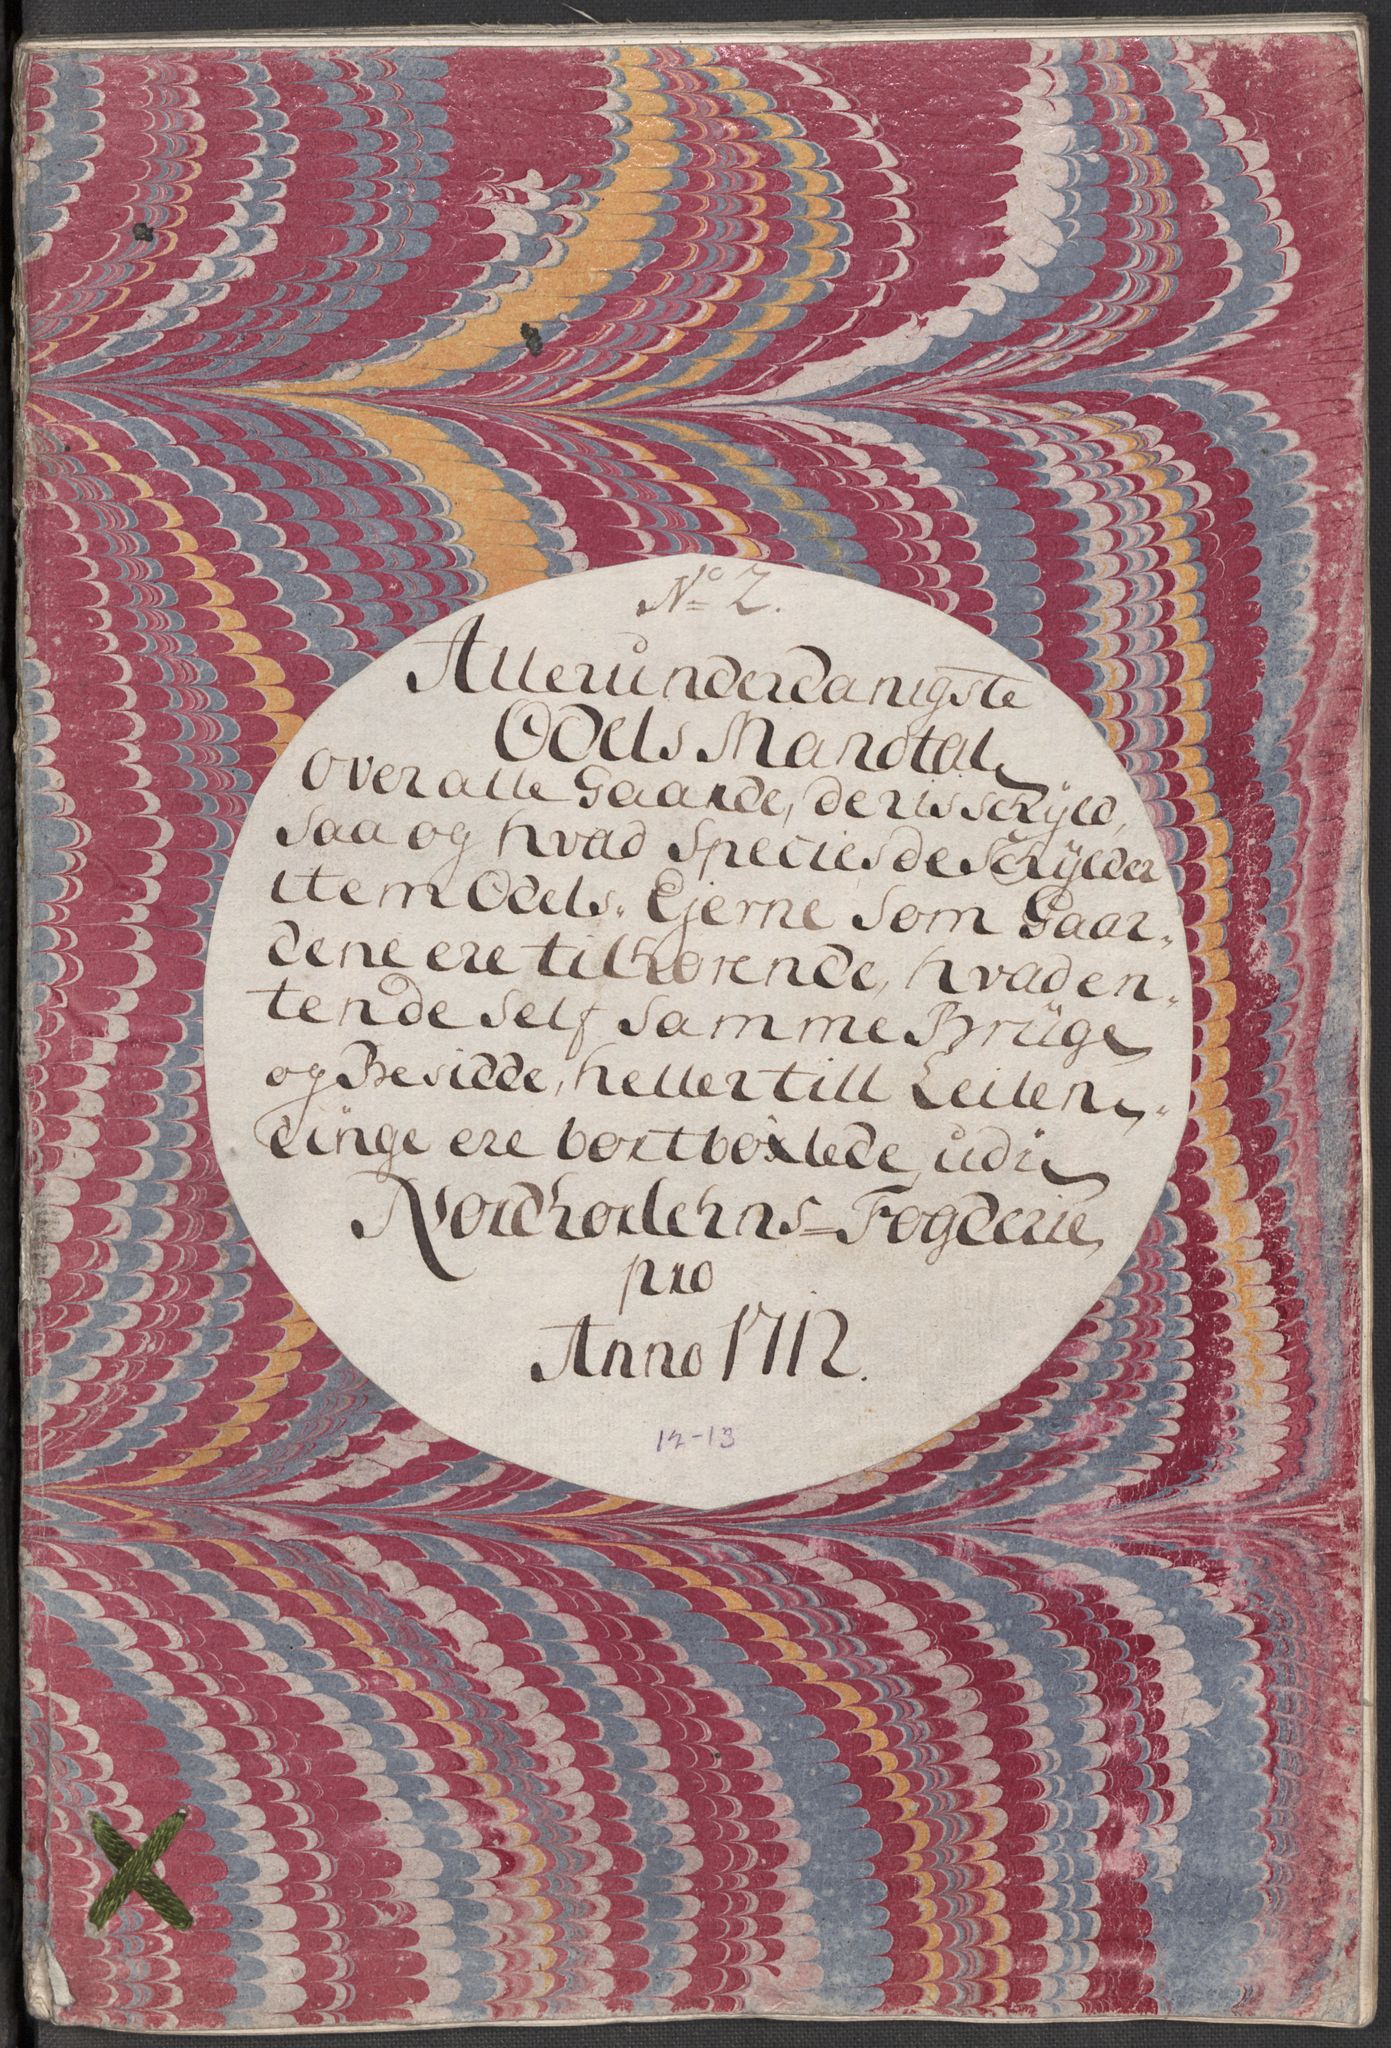 No 2.
Allerunderdanigste
Odels Mandtal
Over alle Gaarde, deris schÿld,
saa og hvad Species de Schÿlder
item Odels-Ejerne som Gaar-
dene ere tilhørende, hvad en-
ten de self samme Brüge
og Besidde, heller till Leilen-
dinge ere bortböxlede udi
Nordhorlehns-Fogderie
pro
Anno 1712.
12-13